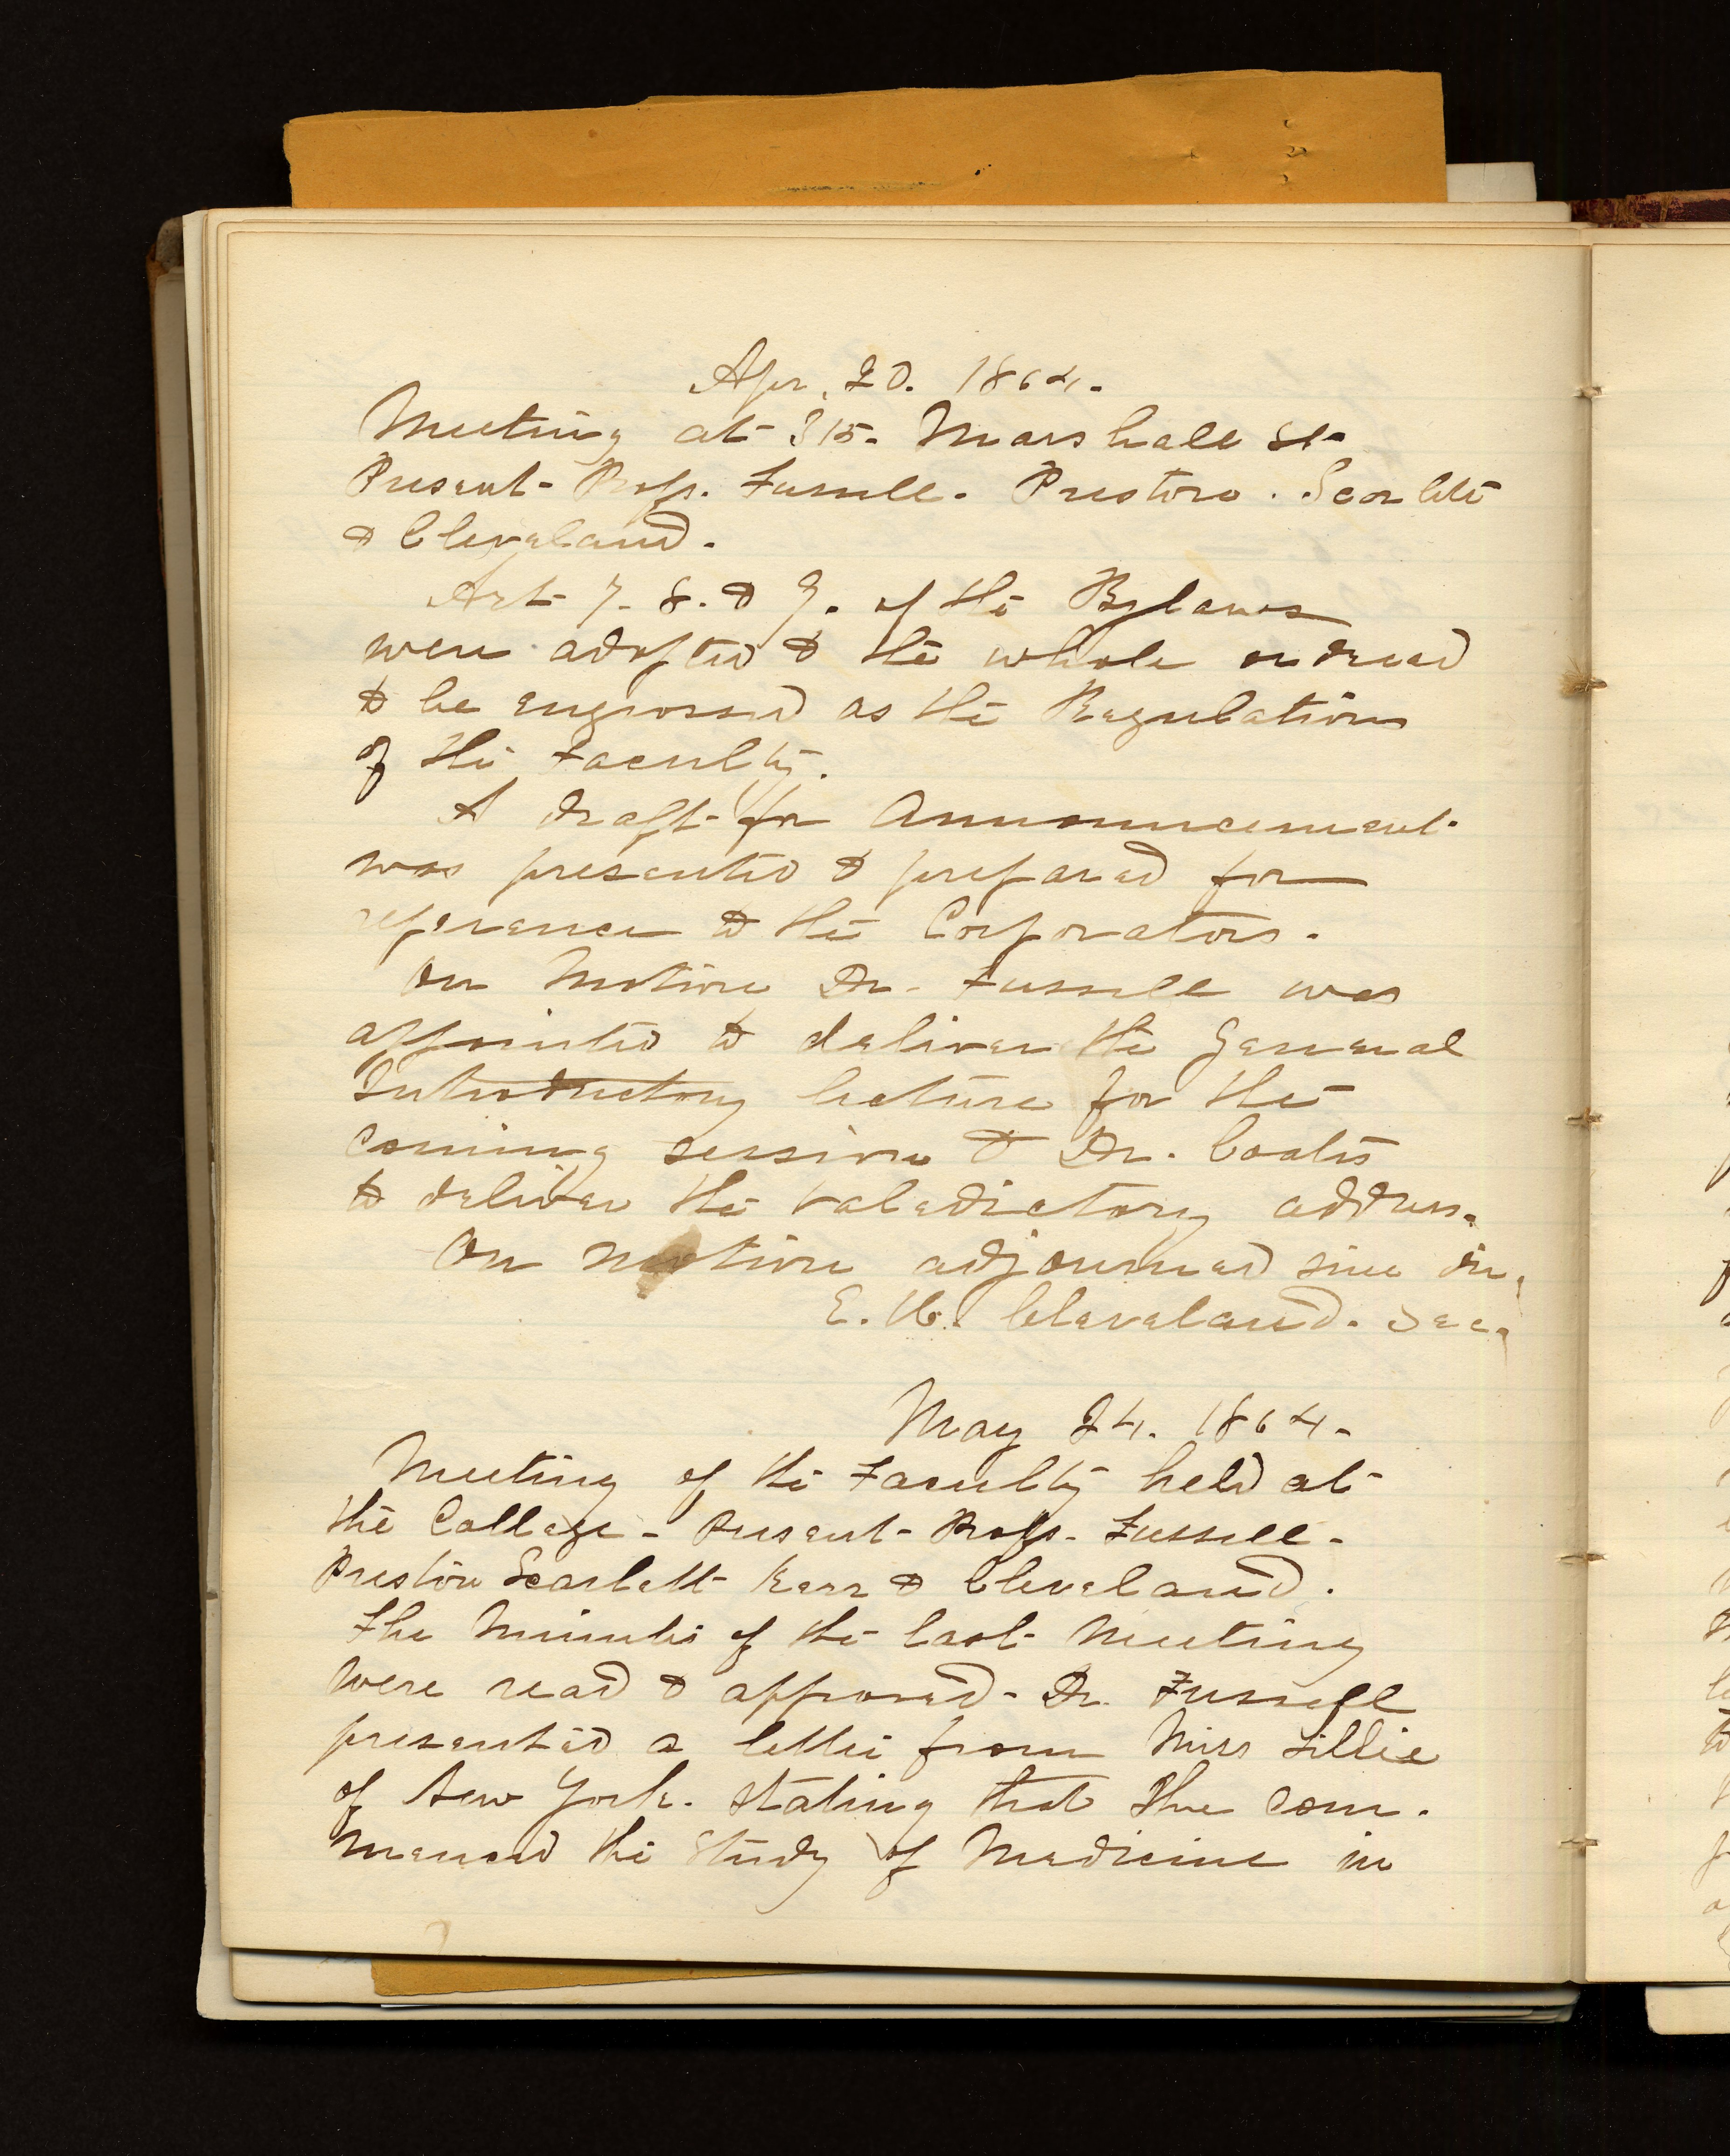 Apr. 20. 1864.
Meeting at 315. Marshall St.
Present - Profs. Fussell. Preston. Scarlett
& Cleveland.
Art 7. 8. & 9. of the Bylaws
were adopted & the whole ordered
to be engrossed as the Regulations
of the Faculty.
A draft for Announcement
was presented & prepared for
reference to the Corporators.
On Motion Dr. Fussell was
appointed to deliver the General
Introductory lecture for the
Coming session & Dr. Coates
to deliver the valedictory address.
On motion adjourned sine die.
E. H. Cleveland. Sec.
May 24. 1864.
Meeting of the Faculty held at
the College - Present - Profs. Fussell -
Preston Scarlett Kerr & Cleveland.
The Minutes of the last Meeting
were read & approved - Dr. Fussell
presented a letter from Miss Lillie
of New York. stating that She com.
menced the Study of Medicine in